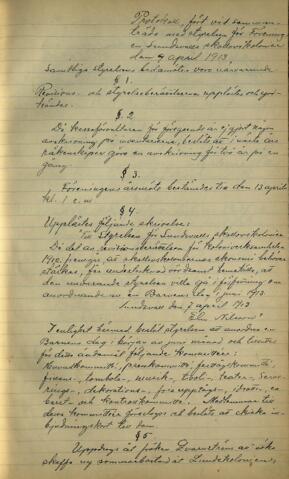 Protokoll, fört vid samman-
träde med styrelsen för Förening-
en Sundsvalls skollovskolonier
den 9 april 1913.
Samtliga styrelsens ledamöter voro närvarande
§ 1.
Revisions- och styrelseberättelserna upplästes och god-
kändes.
§ 2.
Då kassaförvaltaren för
avskrivning på inventarierna, beslöts att i nästa års
räkenskaper göra en avskrivning för två år på en
gång.
§ 3.
Föreningens årsmöte bestämdes till den 13 april
kl. 1 e.m.
§ 4.
Upplästes följande skrivelse:
Till Styrelsen för Sundsvalls skollovskolonier
Då det av revisionsberättelsen för koloniverksamheten
1912 framgår, att skollovskoloniernas ekonomi behöver
stärkas, får undertecknad vördsamt hemställa, att
den undrade styrelsen ville gå i författning om
anordnande av en Barnens dag i juni 1913
Sundsvall den 7 april 1913
Elin Nilsson
I enlighet härmed beslöt styrelsen att anordna en
Barnens dag i början av juni månad och tillsatte
för detta ändamål följande kommittéer:
Huvudkommitté, presskommitté, festtågskommitté,
finans-, tombola-, musik-, teater-,
dekorations-, idrotts-,
och kontrollkommitté. Medlemmar till
dessa kommittéer föreslogos och beslöts att skicka in-
bjudningskort till dem.
§ 5
Uppdrogs åt fröken att söka
skaffa ny sommarbostad åt Lindekolonien,